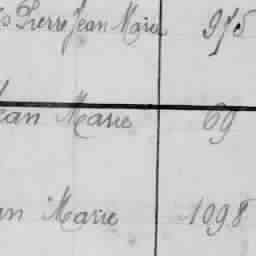 Pierre Jean Marie 975
Jean Marie 69
an Marie 1098